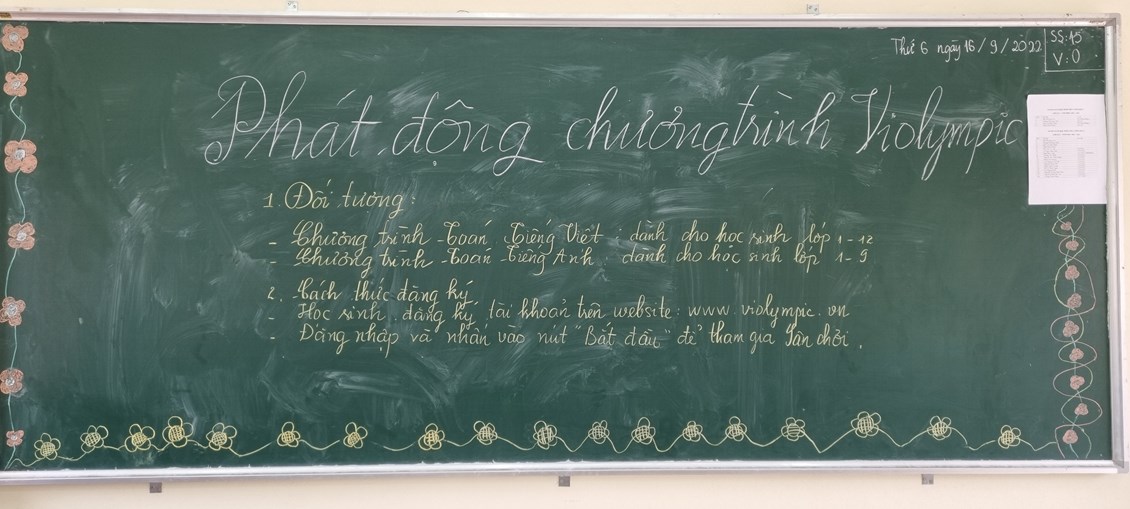 Thứ 6 ngày 16/9/2022
SS: 15
V: 0
Phát động chương trình Violympic
1. Đối tượng:
- Chương trình Toán Tiếng Việt: dành cho học sinh lớp 1-12
- Chương trình Toán Tiếng Anh: dành cho học sinh lớp 1-9
2. Cách thức đăng ký
- Học sinh đăng ký tài khoản trên website: www.violympic.vn
- Đăng nhập và nhấn vào nút "Bắt đầu" để tham gia sân chơi.